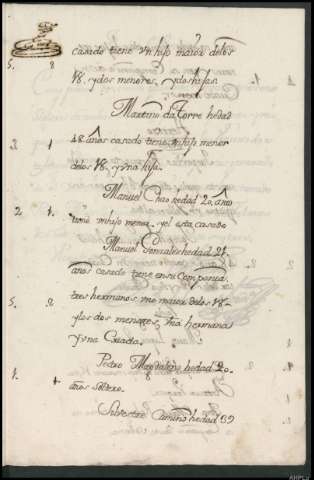 casado tiene vn hijo maior delos
5. 8 18. ydos menores, ydos hijas.
Martin da Torre hedad
3. 1 48 años casado tiene vn hijo menor
delos 18. y vna hija.
Manuel Chao hedad 20. años
2 1. tiene vn hijo menor y el esta casado
Manuel Gonzales hedad 21.
años casado tiene ensu Compania
tres hermanos vno maior delos 18-
5. 8 y los dos menores, vna hermana
y vna Criada.
Pedro Magdaleno hedad 20.
1. años soltero.
Silvestre Camino hedad 39